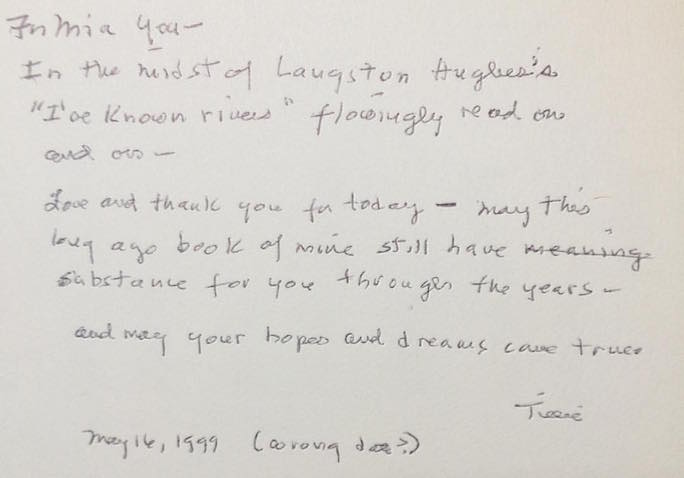 For Mia You –
In the midst of Langston Hughes's
"I've known rivers" flowingly read on
and on –
Love and thank you for today – may this
long ago book of mine still have meaning
substance for you through the years –
and may your hopes and dreams come true.
May 16, 1999 (wrong